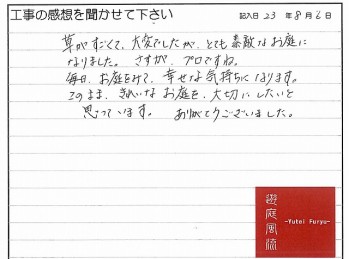 工事の感想を聞かせて下さい 記入日 23 年 8 月 6 日
草がすごくて、大変でしたが、とても素敵なお庭に
なりました。さすが、プロですね。
毎日、お庭をみて、幸せな気持ちになります。
このまま、きれいなお庭を、大切にしたいと
思っています。 ありがとうございました。
遊庭風流
-Yutei Furyu-